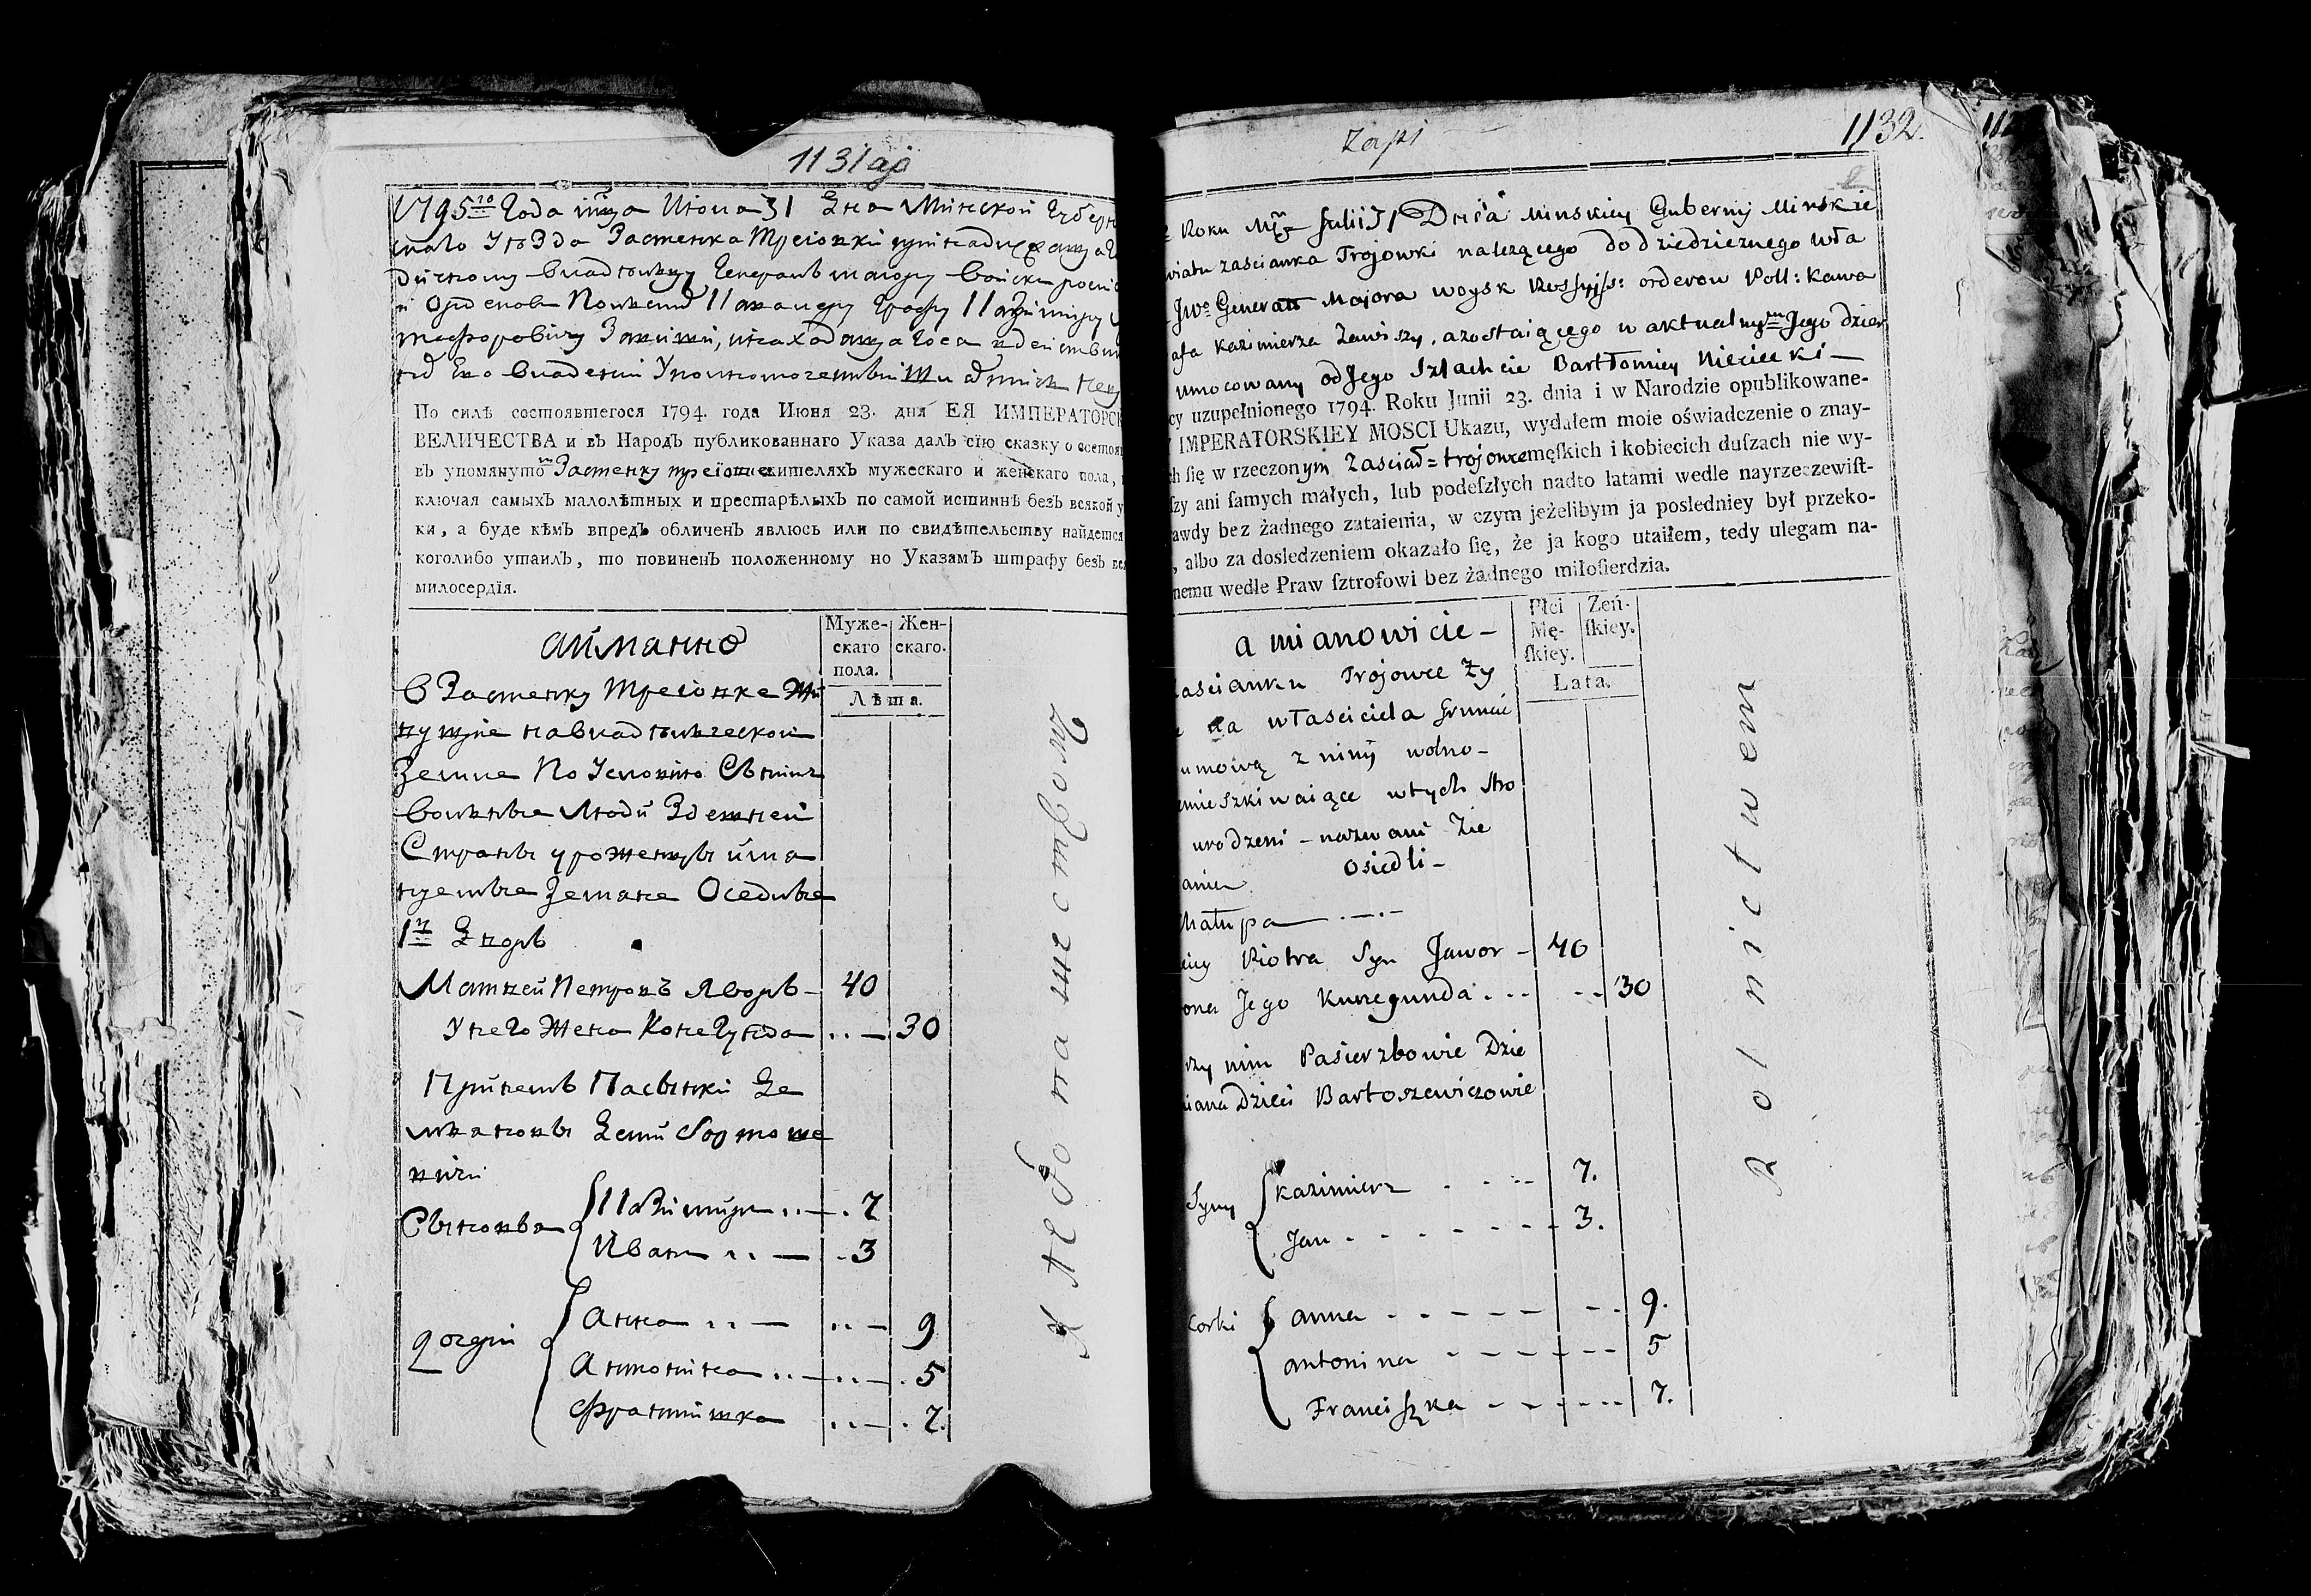 1131
1795го Года мца Июля 31 Дня Минской Губерн
Уезда Застенка Троіовки принадлежаща
владельцу Генералъ маіору Войскъ росиі
и Орденовъ Кавалеру Графу Казимиру
Завиши,
Его владеніи
По силѣ состоявшегося 1794. года Июня 23. дня ЕЯ ИМПЕРАТОРСК
ВЕЛИЧЕСТВА и въ Народъ публикованнаго Указа далъ сїю сказку о состоя
въ упомянутомъ Застенку троіовке жителяхъ мужескаго и женскаго пола,
ключая самыхъ малолѣтныхъ и престарѣлыхъ по самой истиннѣ безъ всякой у
ки, а буде кѣмъ впредъ обличенъ явлюсь или по свидѣтельству найдется
коголибо утаилъ, то повиненъ положенному по Указамъ штрафу безъ вся
милосердїя.
аимянно
Муже-скаго пола.
Жен-скаго.
Лѣта.
В Застенку Троіовке Жи
вущіе на владѣльческой
Земле По Условію Съ нимъ
вольные Люди Здешней
Страны уроженцы имя
нуемые Земяне Оседлые
1й Дворъ
Матвей Петровъ Яворъ — 40
У него Жена Конегунда .. — 30
При немъ Пасынки Де
мьяновы Дети Бортоше
вичи
Сыновья
Казимиръ .. — . 7
Иванъ .. — . 3
дочери
Анна .. — .. — 9
Антонина .. — .. — . 5
Францишка .. — . 7.
Хлебопашествомъ
Zapi
1132.
Roku Mca Julii 31 Dnia Minskiey Gubernij Minskie
wiatu zascianka Trojowki należącego do dziedzicznego wła
JWo Generała Majora woysk Rossyjs: orderow Poll: Kawa
afa Kazimierza Zawiszy, a zostaiącego w aktualnym Jego dzier
umocowany od Jego Szlachcic Bartłomiey Nieciecki —
cy uzupełnionego 1794. Roku Junii 23. dnia i w Narodzie opublikowane-
Y IMPERATORSKIEY MOSCI Ukazu, wydałem moie oświadczenie o znay-
ch się w rzeczonym Zasciań= trojowce męſkich i kobiecich duſzach nie wy-
ſzy ani ſamych małych, lub podeſzłych nadto latami wedle nayrzeczewiſt-
awdy bez żadnego zataienia, w czym jeżelibym ja posledniey był przeko-
, albo za dosledzeniem okazało ſię, że ja kogo utaiłem, tedy ulegam na-
nemu wedle Praw ſztrofowi bez żadnego miłoſierdzia.
a mianowicie -
Płci Mę-ſkiey.
Żeń-ſkiey.
Lata.
ascianku Trojowce Ży
na własciciela gruncie
umową z nim wolno-
mieszkiwaiące w tych stro
urodzeni - nazwani Zie
anie Osiedli -
hałupa
iey Piotra Syn Jawor - 40
ona Jego Kunegunda . . . 30
rzy nim Pasierzbowie Dzie
iana Dzieci Bartoszewiczowie
Syny
Kazimierz . . . 7.
Jan . - - - - - 3.
Corki
anna . - - - - - 9.
antonina - - - - - 5
Franciszka - - - - 7.
Rolnictwem